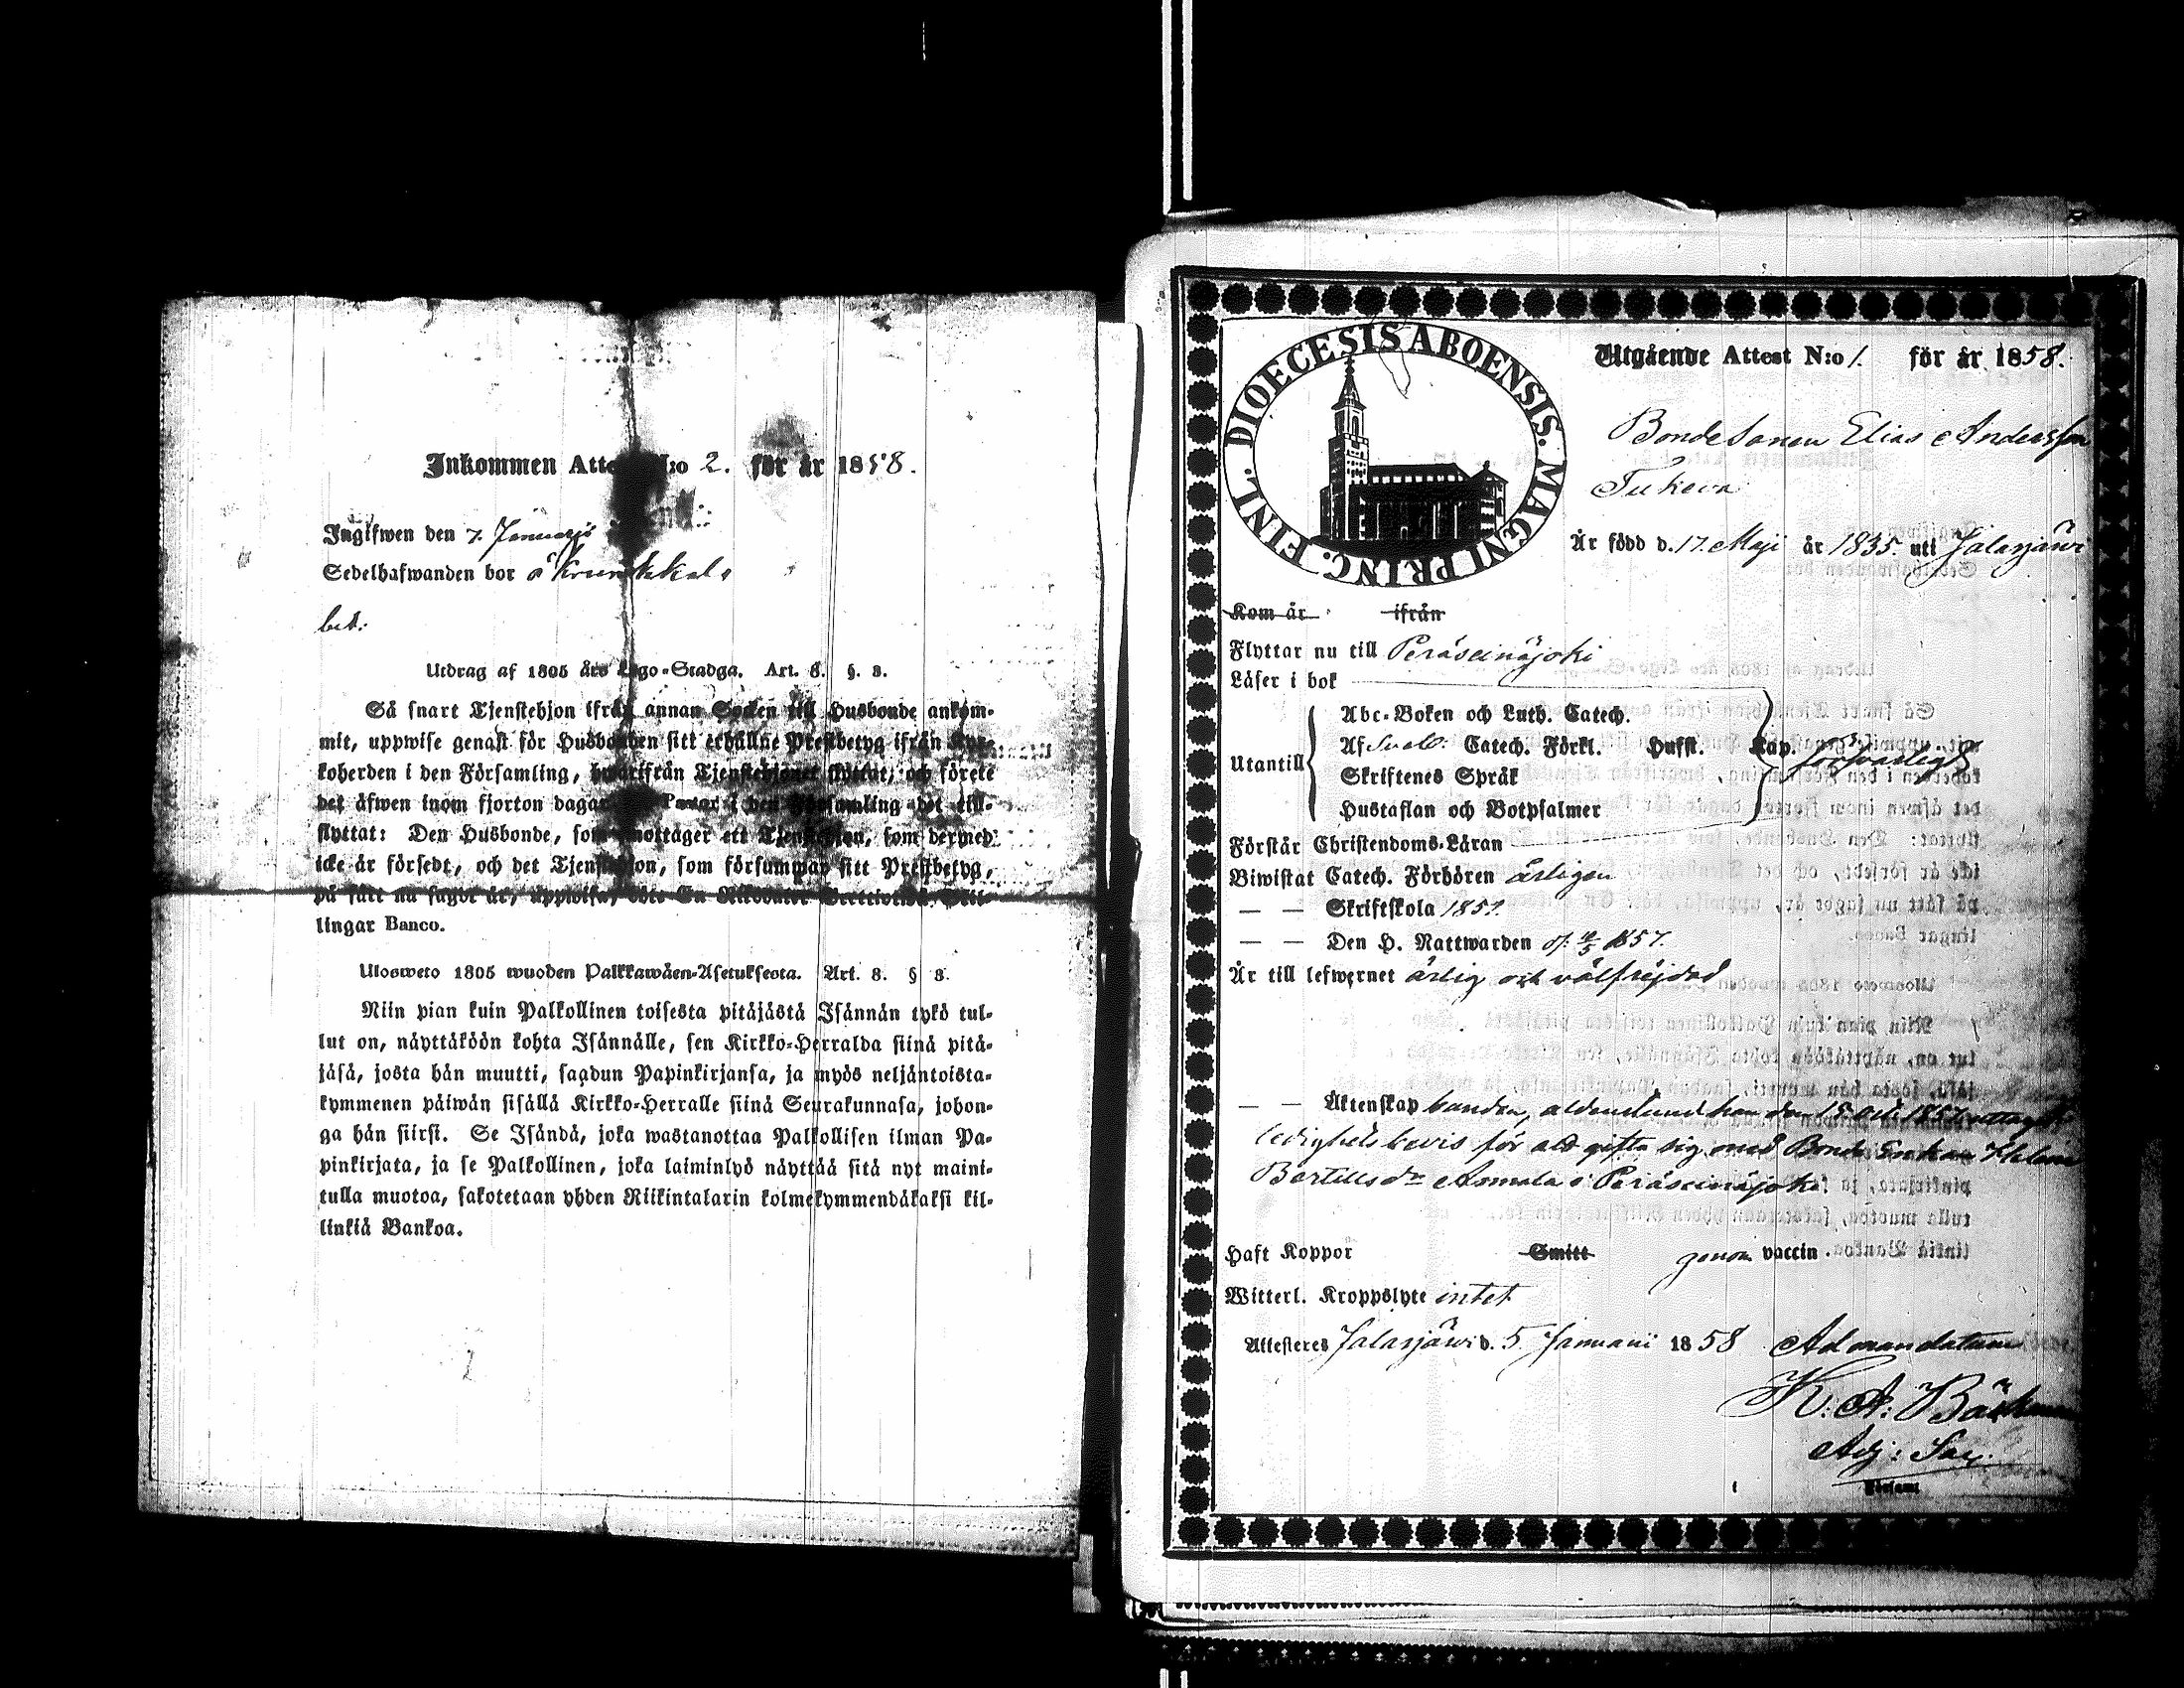 Inkommen Attest N:o 2. för år 1858.
Ingifwen den 7. Januarii
Sedelhafwanden bor å
bet:
Utdrag af 1805 års Lego-Stadga. Art. 8. §. 8.
Så snart Tjenstehjon ifrån annan Socken till Husbonde ankom-
mit, uppwise genast för Husbonden sitt erhållne Prestbetyg ifrån Kyr-
koherden i den Församling, hwarifrån Tjenstehjonet flyttat; och förete
det äfwen inom fjorton dagar för Pastor i den Församling det till-
flyttat: Den Husbonde, som emottager ett Tjenstehjon, som dermed
icke är försedt, och det Tjenstehjon, som försummar sitt Prestbetyg,
på sätt nu sagdt är, uppwisa, böte En Riksdaler Trettiotwå Skil-
lingar Banco.
Ulosweto 1805 wuoden Palkkawäen-Asetuksesta. Art. 8. § 8.
Niin pian kuin Palkollinen toisesta pitäjästä Isännän tykö tul-
lut on, näyttäköön kohta Isännälle, sen Kirkko-Herralda siinä pitä-
jäsä, josta hän muutti, saadun Papinkirjansa, ja myös neljäntoista-
kymmenen päiwän sisällä Kirkko-Herralle siinä Seurakunnasa, johon-
ga hän siirsi. Se Isändä, joka wastanottaa Palkollisen ilman Pa-
pinkirjata, ja se Palkollinen, joka laiminlyö näyttää sitä nyt maini-
tulla muotoa, sakotetaan yhden Riikintalarin kolmekymmendäkaksi kil-
linkiä Bankoa.
DIOECESIS ABOENSIS. MAGNI PRINC. FINL.
Utgående Attest N:o 1. för år 1858.
Bondesonen Elias Andersson
Tukeva
Är född d. 17. Maji år 1835. uti Jalasjärvi
Kom år ifrån
Flyttar nu till Peräseinäjoki
Läser i bok
Abc-Boken och Luth. Catech.
Utantill Af Sveb. Catech. Förkl. Husst. Kap. försvarligt
Skriftenes Språk
Hustaflan och Botpsalmer
Förstår Christendoms-Läran
Biwistat Catech. Förhören årligen
— — Skriftskola 1851.
— — Den H. Nattwarden 1857.
Är till lefwernet ärlig och välfrejdad
— — Äktenskap den 15. Oct. 1857 uttagit
ledighets bevis för att gifta sig med Bonde Enkan Helena
Bertilsdr Ammala i Peräseinäjoki
Haft Koppor Smitt genom vaccin.
Witterl. Kroppslyte intet
Attesteres Jalasjärvi d. 5. Januarii 1858 Ad mandatum
K: A: Bäckman
Adj: Sac.
Församl